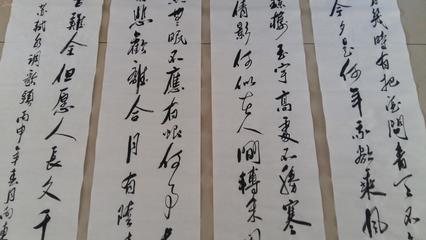 幾時有把酒問青天不
今夕是何年我欲乘風
瓊樓玉宇高處不勝寒
清影何似在人間轉朱閣
無眠不應有恨何事
悲歡離合月有陰
難全但愿人長久千
蘇軾水調歌頭丙申年春月